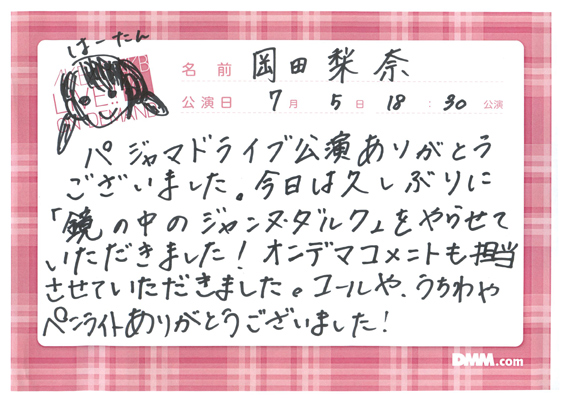 はーたん
名前 岡田梨奈
公演日 7月 5日 18:30 公演
パジャマドライブ公演ありがとう
ございました。今日は久しぶりに
「鏡の中のジャンヌ・ダルク」をやらせて
いただきました！オンデマコメントも担当
させていただきました。コールや、うちわや
ペンライトありがとうございました！
DMM.com